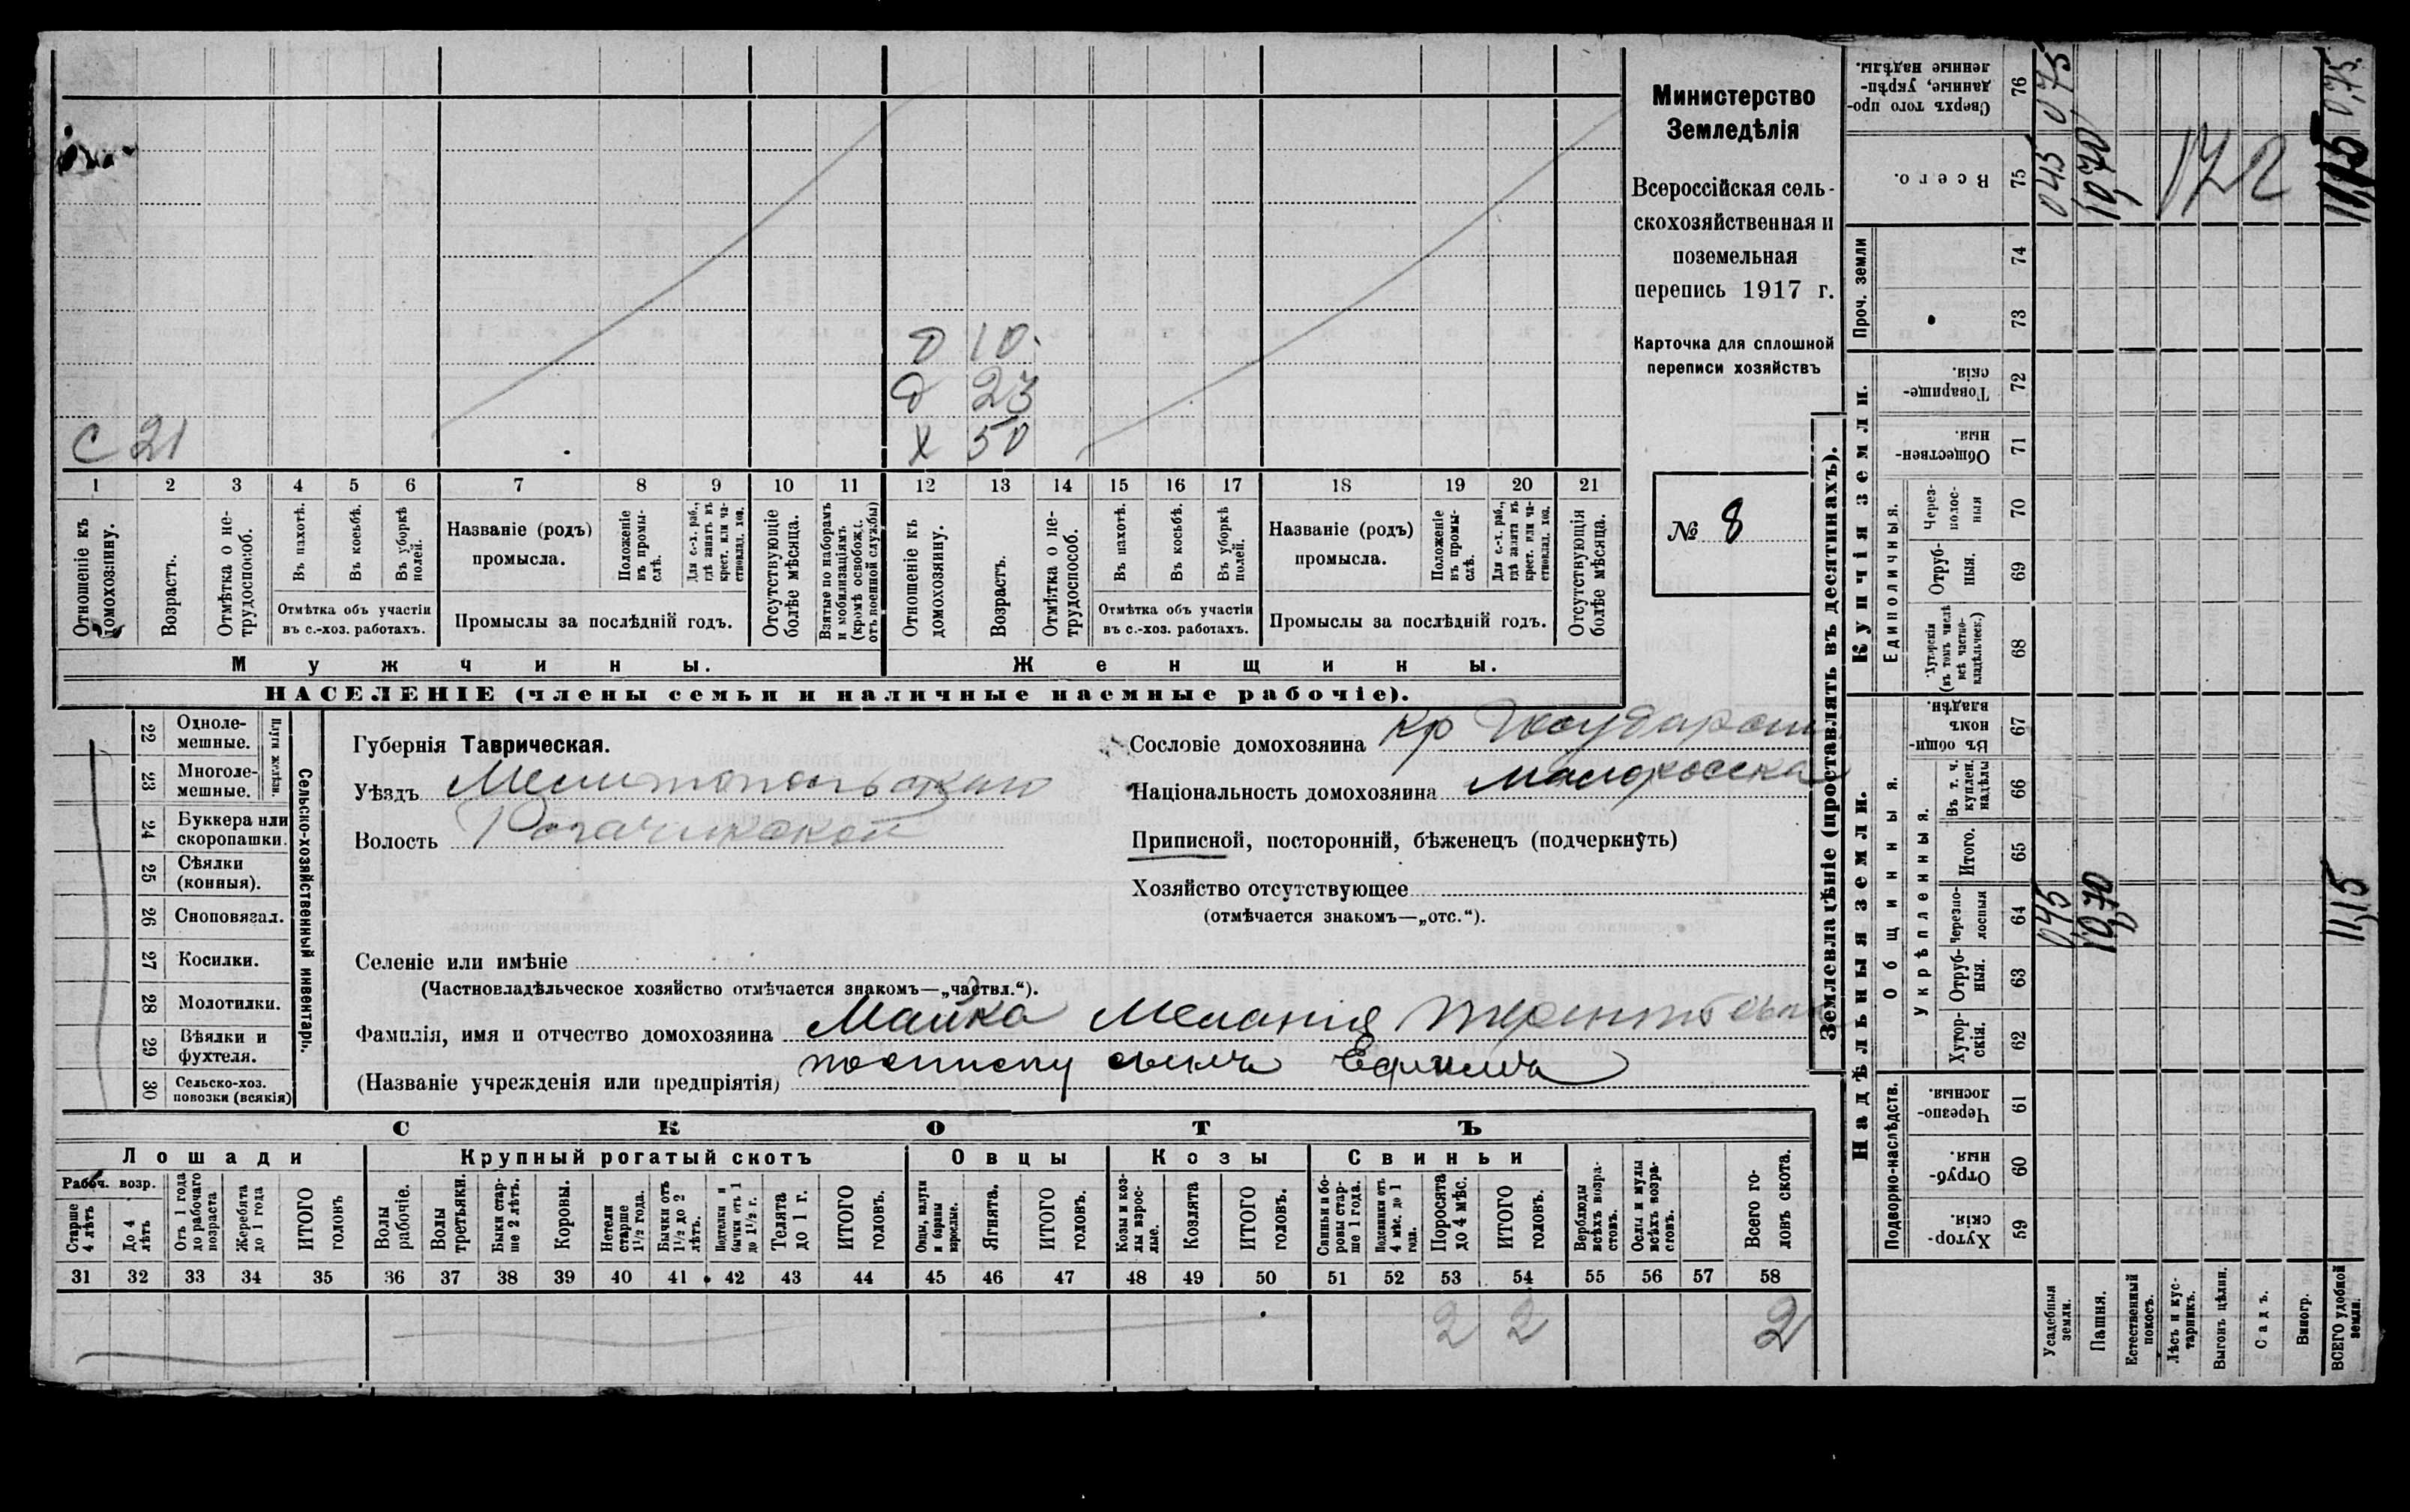 О 10.
д 23
С 21
Х 50
1 2 3 4 5 6 7 8 9 10 11 12 13 14 15 16 17 18 19 20 21
Отношеніе къ домохозяину.
Возрастъ.
Отмѣтка о нетрудоспособ.
Въ пахотѣ.
Въ косьбѣ.
Въ уборкѣ полей.
Отмѣтка объ участіи
въ с.-хоз. работахъ.
Названіе (родъ)
промысла.
Положеніе въ промыслѣ.
Для с.-х. раб., гдѣ занятъ въ крест. или частновлад. хоз.
Промыслы за послѣдній годъ.
Отсутствующіе болѣе мѣсяца.
Взятые по наборамъ и мобилизаціямъ (кромѣ освобожд. отъ военной службы)
Отношеніе къ домохозяину.
Возрастъ.
Отмѣтка о нетрудоспособ.
Въ пахотѣ.
Въ косьбѣ.
Въ уборкѣ полей.
Отмѣтка объ участіи
въ с.-хоз. работахъ.
Названіе (родъ)
промысла.
Положеніе въ промыслѣ.
Для с.-х. раб., гдѣ занята въ крест. или частновлад. хоз.
Промыслы за послѣдній годъ.
Отсутствующія болѣе мѣсяца.
Мужчины. Женщины.
НАСЕЛЕНІЕ (члены семьи и наличные наемные рабочіе).
Министерство
Земледѣлія
Всероссійская сель-
скохозяйственная и
поземельная
перепись 1917 г.
Карточка для сплошной
переписи хозяйствъ
№ 8
Сельско-хозяйственный инвентарь.
Плуги желѣзн.
22 Одноле-
мешные.
23 Многоле-
мешные.
24 Буккера или
скоропашки.
25 Сѣялки
(конныя).
26 Сноповязал.
27 Косилки.
28 Молотилки.
29 Вѣялки и
фухтеля.
30 Сельско-хоз.
повозки (всякія)
Губернія Таврическая.
Уѣздъ Мелитопольскаго
Волость Рогачикской
Сословіе домохозяина кр
Національность домохозяина малоросска
Приписной, посторонній, бѣженецъ (подчеркнуть)
Хозяйство отсутствующее
(отмѣчается знакомъ—„отс.“).
Селеніе или имѣніе
(Частновладѣльческое хозяйство отмѣчается знакомъ—„частвл.“).
Фамилія, имя и отчество домохозяина Майка Меланія
(Названіе учрежденія или предпріятія) посписку сына Ефима
СКОТЪ
Лошади Крупный рогатый скотъ Овцы Козы Свиньи
Рабоч. возр.
Старше 4 лѣтъ
До 4 лѣтъ
Отъ 1 года до рабочаго возраста
Жеребята до 1 года
ИТОГО головъ
Волы рабочіе.
Волы третьяки.
Быки старше 2 лѣтъ.
Коровы.
Нетели старше 1½ года.
Бычки отъ 1½ до 2 лѣтъ.
Подтелки и бычки отъ 1 до 1½ г.
Телята до 1 г.
ИТОГО головъ.
Овцы, валухи и бараны взрослые.
Ягнята.
ИТОГО головъ.
Козы и козлы взрослые.
Козлята
ИТОГО головъ.
Свиньи и боровы старше 1 года.
Подсвинки отъ 4 мѣс. до 1 года.
Поросята до 4 мѣс.
ИТОГО головъ.
Верблюды всѣхъ возрастовъ.
Ослы и мулы всѣхъ возрастовъ.
Всего головъ скота.
31 32 33 34 35 36 37 38 39 40 41 42 43 44 45 46 47 48 49 50 51 52 53 54 55 56 57 58
2 2 2
Землевладѣніе (проставлять въ десятинахъ).
Надѣльныя земли. Купчія земли. Проч. земли
Подворно-наслѣдств.
Общинныя.
Укрѣпленныя.
Единоличныя.
59 Хуторскія.
60 Отрубныя.
61 Черезполосныя.
62 Хуторскія.
63 Отрубныя.
64 Черезполосныя
65 Итого.
66 Въ т. ч. куплен. надѣлы
67 Въ общинномъ владѣн.
68 Хуторскія (въ томъ числѣ всѣ частновладѣльческ.)
69 Отрубныя.
70 Черезполосныя
71 Общественныя.
72 Товарищескія.
73
74
75 Всего.
76 Сверхъ того проданные, укрѣпленные надѣлы.
Усадебныя земли. 045 045 075
Пашня. 10,70 10,70
Естественный покосъ.
Лѣсъ и кустарникъ.
Выгонъ цѣлин.
Садъ.
Виногр.
ВСЕГО удобной земли. 11,15 11,15 0,75.
172